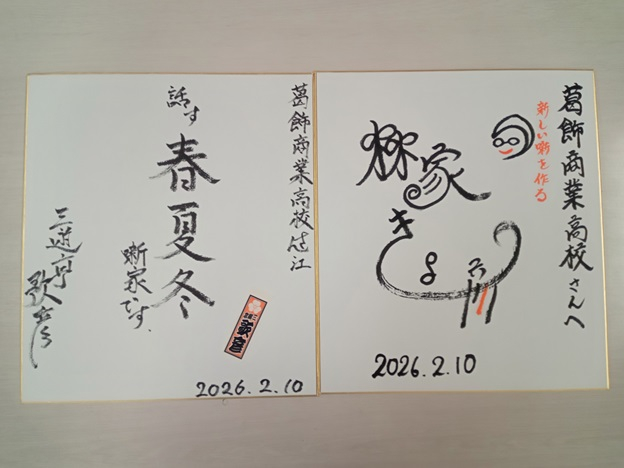 葛飾商業高校さんへ
新しい噺を作る
柳家
2026.2.10
葛飾商業高校さん江
話す
春夏冬
噺家です.
三遊亭歌彦
歌彦
2026.2.10